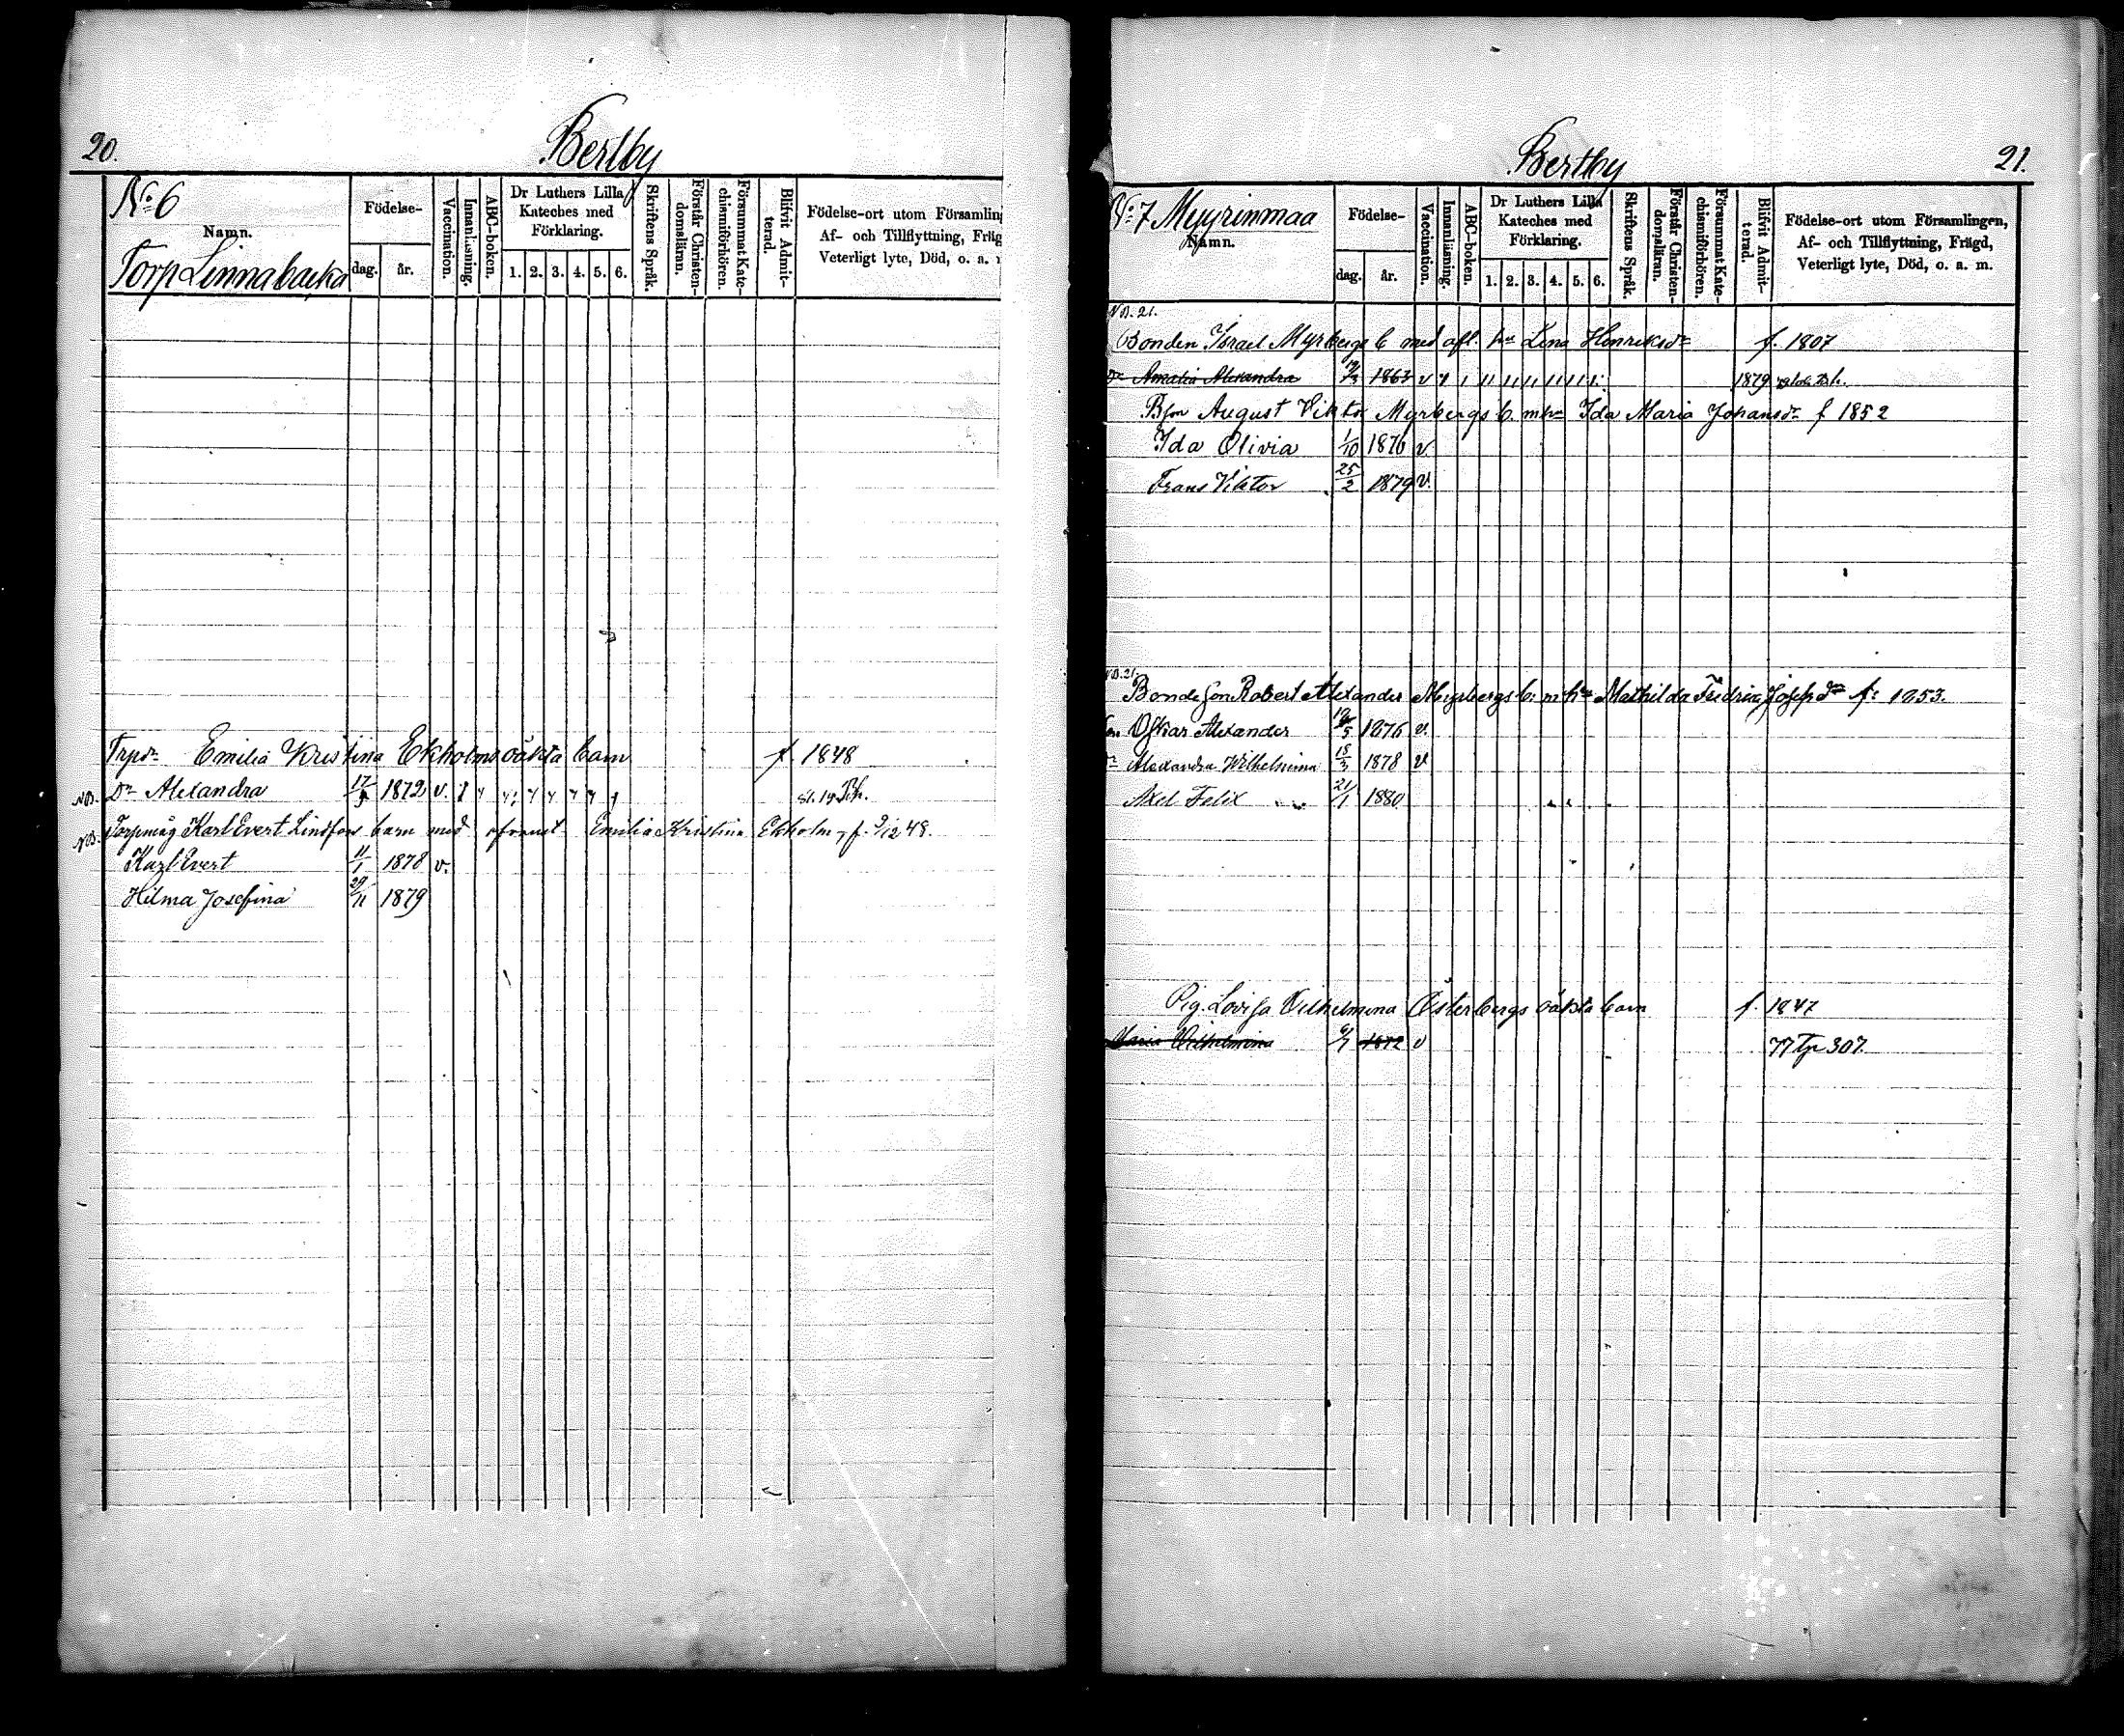 20.
Bertby
No 6
Namn.
Torp Linnabacka
Födelse-
dag.
år.
Vaccination.
Innanläsning.
ABC-boken.
Dr Luthers Lilla
Kateches med
Förklaring.
1. 2. 3. 4. 5. 6.
Skriftens Språk.
Förstår Christen-
domsläran.
Försummat Kate-
chismiförhören.
Blifvit Admit-
terad.
Födelse-ort utom Församling
Af- och Tillflyttning, Fräg
Veterligt lyte, Död, o. a.
Trpdr Emilia Kristina Ekholms oäkta barn f. 1848
NB. Dr Alexandra 1872 v.
NB. Torpmåg Karl Evert Lindfors barn med ofvannt Emilia Kristina Ekholm, f. 9/12 48.
Karl Evert 11/1 1878 v.
Hilma Josefina 29/11 1879
Bertby
21.
No 7 Myyrinmaa
Namn.
Födelse-
dag.
år.
Vaccination.
Innanläsning.
ABC-boken.
Dr Luthers Lilla
Kateches med
Förklaring.
1. 2. 3. 4. 5. 6.
Skriftens Språk.
Förstår Christen-
domsläran.
Försummat Kate-
chismiförhören.
Blifvit Admit-
terad.
Födelse-ort utom Församlingen,
Af- och Tillflyttning, Frägd,
Veterligt lyte, Död, o. a. m.
NB. 21.
Bonden Israel Myrbergs b med afl. hu Lena Henriksdr f. 1807
Dr Amalia Alexandra 1863 v 1879
Bson August Viktor Myrbergs b. m hu Ida Maria Johansdr f 1852
Ida Olivia 1/10 1876 v.
Frans Viktor 25/2 1879 v.
NB. 21.
Bondeson Robert Alexander Myrbergs b. m hu Mathilda Fredrika Josefsdr f: 1853.
Oskar Alexander 1876 v.
Dr Alexandra Wilhelmina 18/3 1878 v
Axel Felix 21/1 1880
Pig. Lovisa Vilhelmina Österbergs oäkta barn f. 1847
Maria Wilhelmina 1872 v 77 Tp 307.